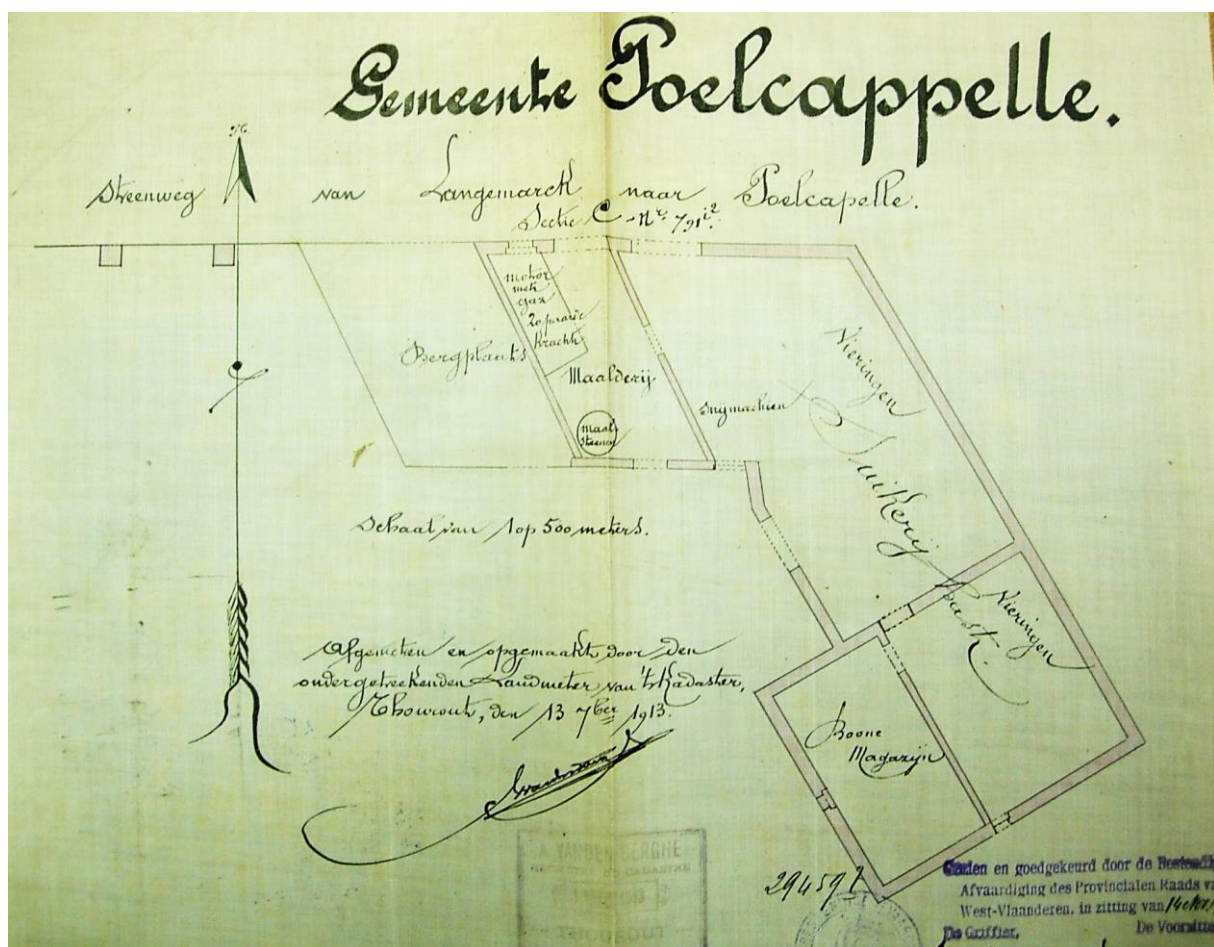 Gemeente Poelcappelle.
N.
Steenweg van Langemarck naar Poelcapelle.
Sectie C - Nr 791 i2.
motor
met
gaz
20 paard
kracht
Bergplaats
Maalderij
maal
steenen
Snijmachien
Vieringen
Suikerij Aast.
Vieringen
Boone
Magazijn
Schaal van 1 op 500 meters.
Afgemeten en opgemaakt door den
ondergeteekenden Landmeter van 't Kadaster,
Thourout, den 13 7ber 1913.
A. VANDEN BERGHE
THOUROUT
294597
Gezien en goedgekeurd door de Bestendi
Afvaardiging des Provincialen Raads va
West-Vlaanderen, in zitting van 14
De Griffier,
De Voorzitte